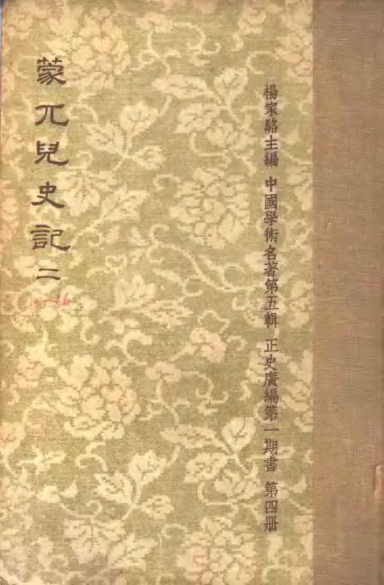 楊家駱主編 中國學術名著第五輯 正史廣編第一期書 第四册
蒙兀兒史記二